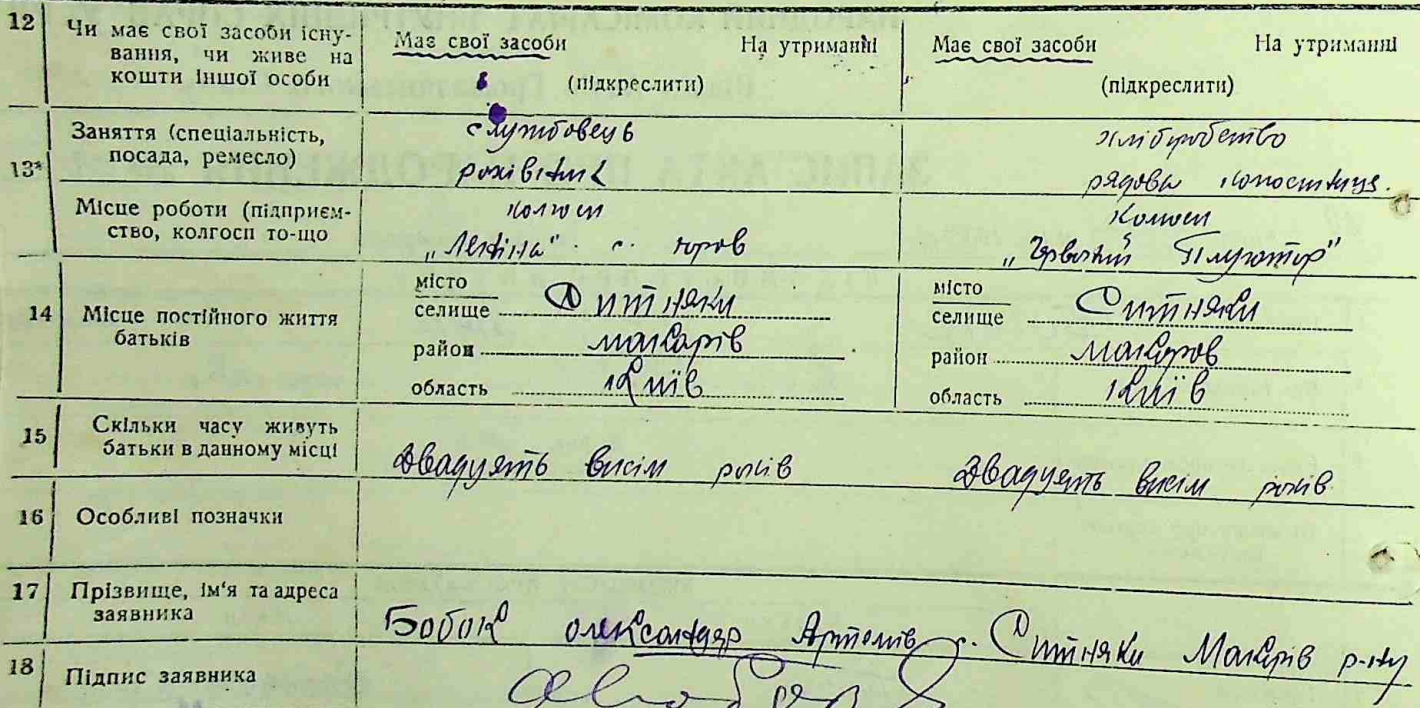 12 Чи має свої засоби існу-
вання, чи живе на
кошти іншої особи
Має свої засоби На утриманні
(підкреслити)
Має свої засоби На утриманні
(підкреслити)
13* Заняття (спеціальність,
посада, ремесло)
службовець
рахівник
хліборобство
рядова
Місце роботи (підприєм-
ство, колгосп то-що
колгосп
„Леніна" с. Юров
Колгосп
„Червоний Плугатор"
14 Місце постійного життя
батьків
місто
селище Ситняки
район Макарів
область Київ
місто
селище Ситняки
район Макаров
область Київ
15 Скільки часу живуть
батьки в данному місці
двадцять висім років
двадцять висім років
16 Особливі позначки
17 Прізвище, ім'я та адреса
заявника
Бобок Олександр Артемів с. Ситняки Макарів р-ну
18 Підпис заявника